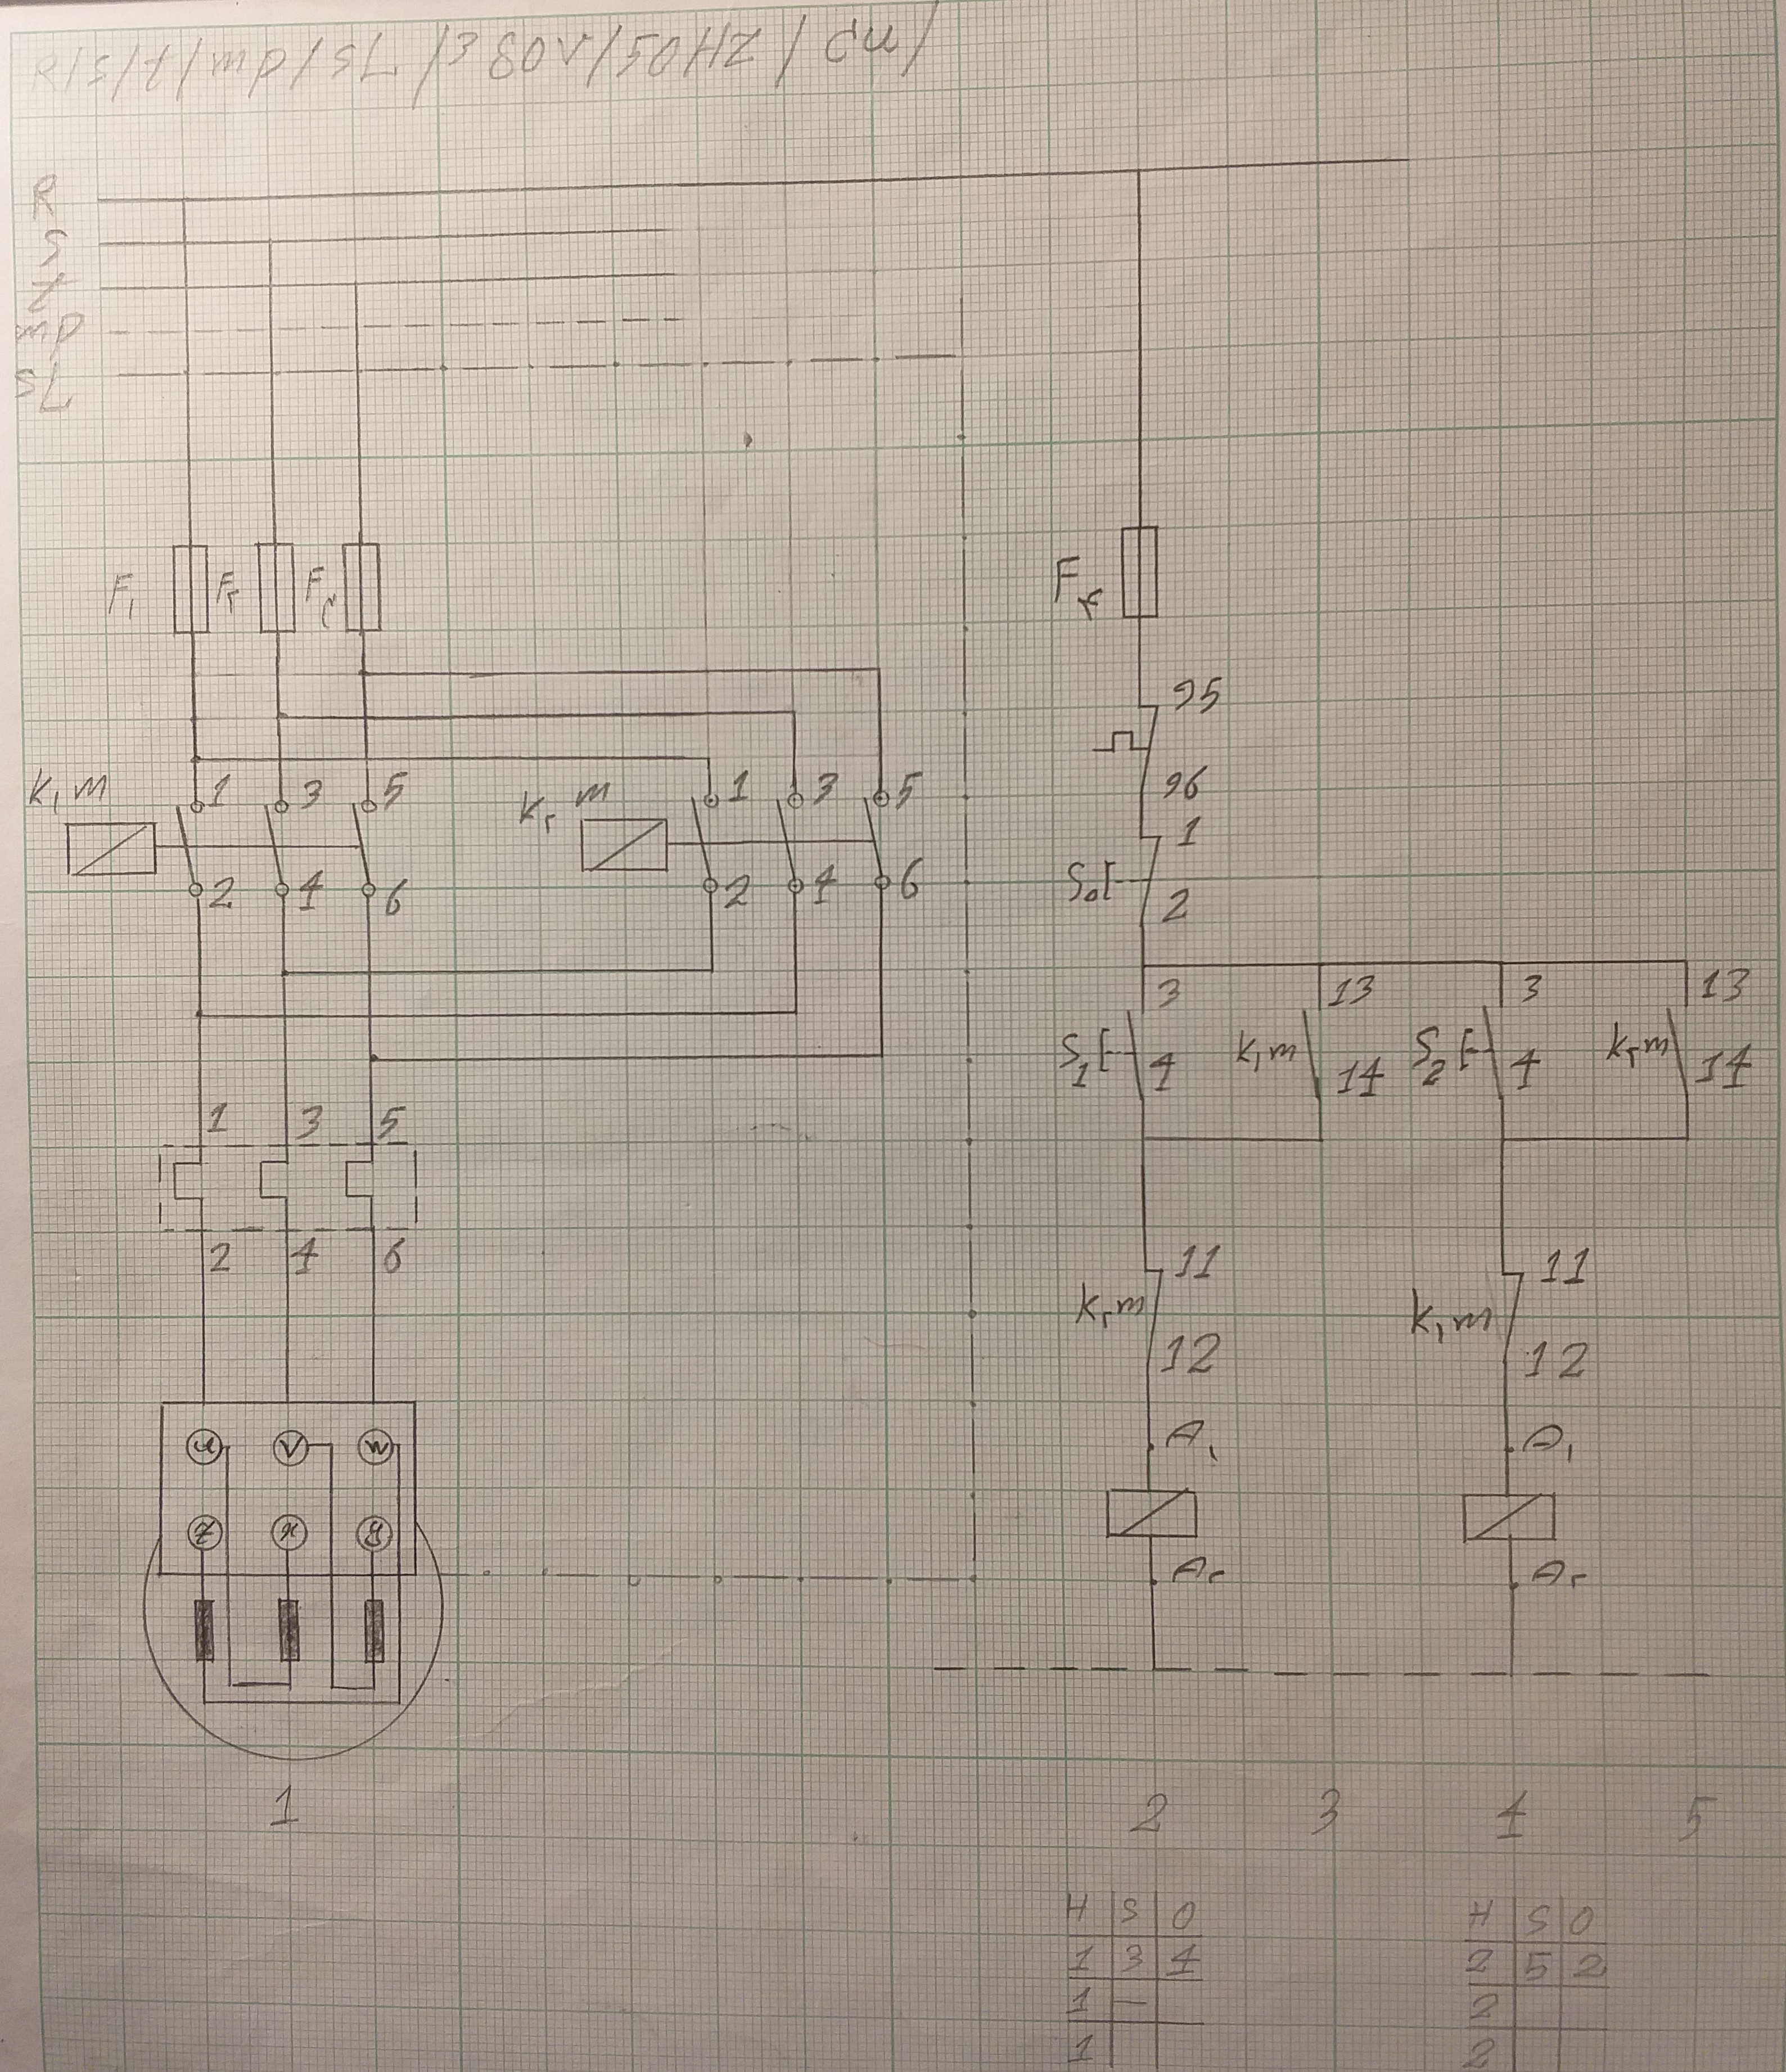 R/S/t/mp/SL/380v/50HZ/cu/
R
S
t
mp
SL
F۱ F۲ F۳ F۴
95
k۱m 1 3 5 k۲m 1 3 5
96
1
2 4 6 2 4 6 S0
2
3 13 3 13
S1 k۱m S2 k۲m
4 14 4 14
1 3 5
2 4 6 11 11
k۲m k۱m
12 12
u v w A۱ A۱
z x y
A۲ A۲
1 2 3 4 5
H S O H S O
1 3 4 2 5 2
1 — 2
1 2